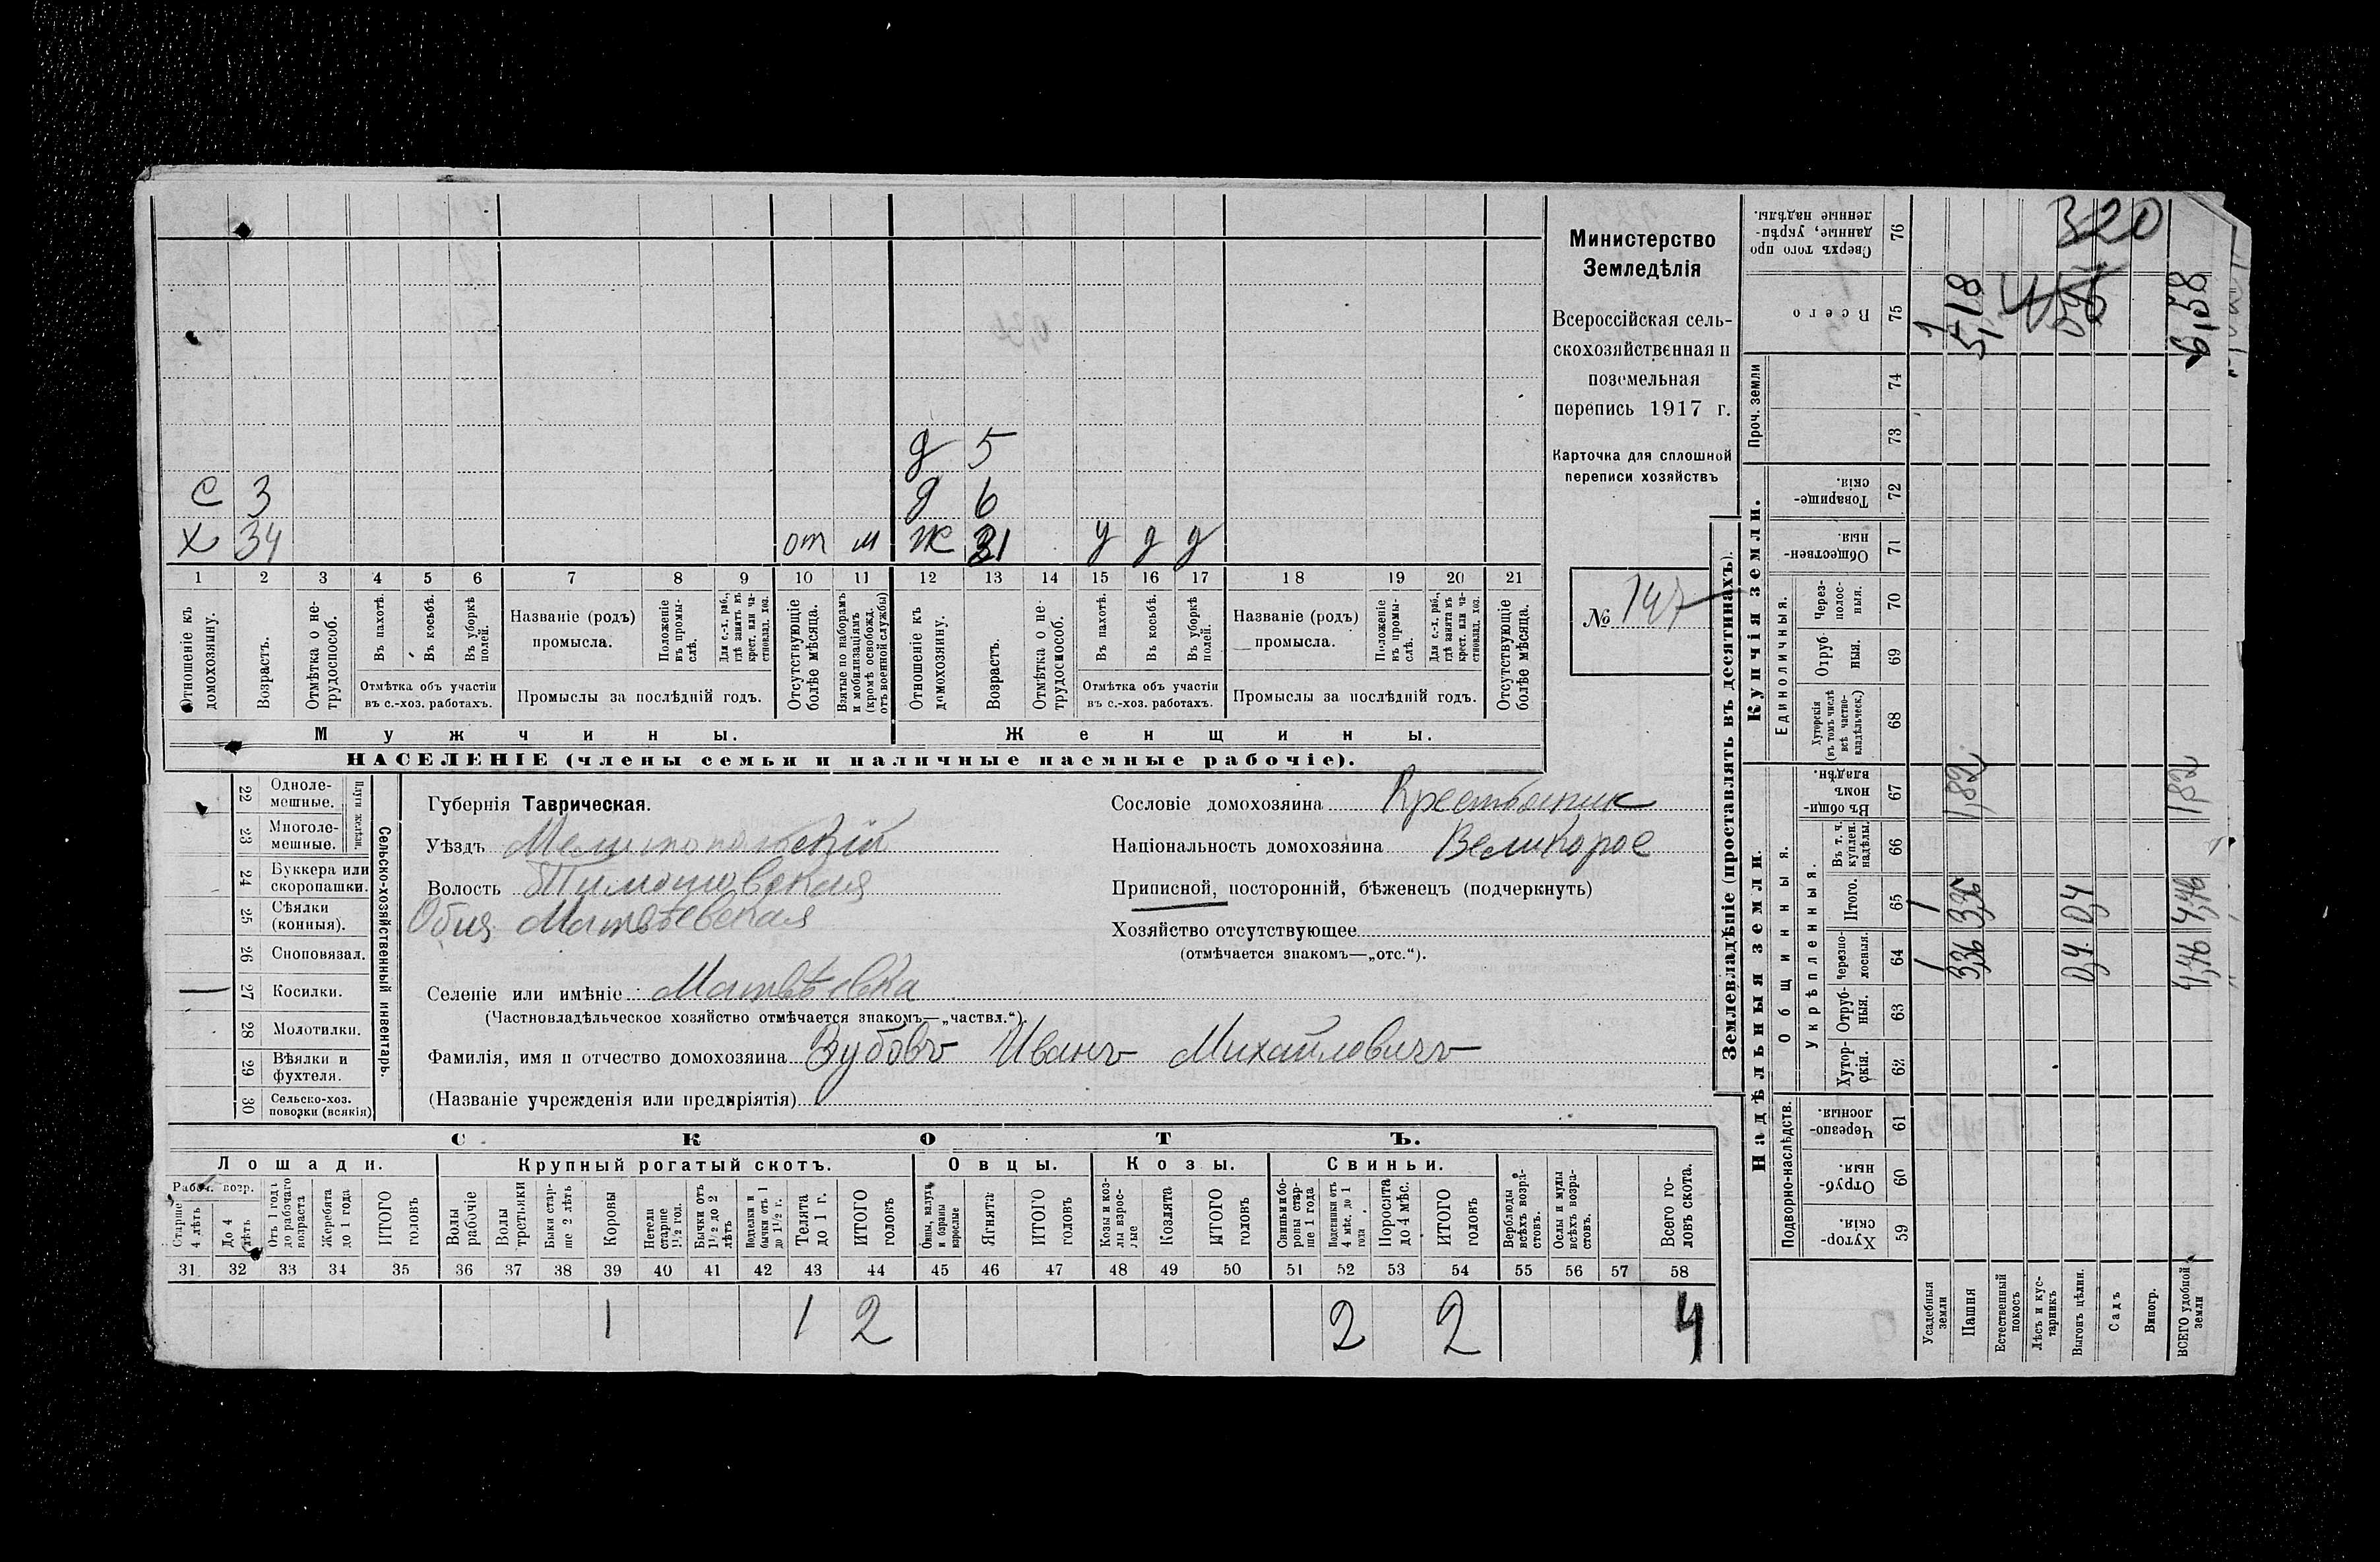 С 3
Х 34 от м
д 5
д 6
ж 31 у д д
1 2 3 4 5 6 7 8 9 10 11 12 13 14 15 16 17 18 19 20 21
Отношеніе къ домохозяину.
Возрастъ.
Отмѣтка о нетрудоспособ.
Въ пахотѣ.
Въ косьбѣ.
Въ уборкѣ полей.
Отмѣтка объ участіи
въ с.-хоз. работахъ.
Названіе (родъ)
промысла.
Положеніе въ промыслѣ.
Для с.-х. раб., гдѣ занятъ въ крест. или частновлад. хоз.
Промыслы за послѣдній годъ.
Отсутствующіе болѣе мѣсяца.
Взятые по наборамъ и мобилизаціямъ (кромѣ освобожд. отъ военной службы)
Отношеніе къ домохозяину.
Возрастъ.
Отмѣтка о нетрудоспособ.
Въ пахотѣ.
Въ косьбѣ.
Въ уборкѣ полей.
Отмѣтка объ участіи
въ с.-хоз. работахъ.
Названіе (родъ)
промысла.
Положеніе въ промыслѣ.
Для с.-х. раб., гдѣ занята въ крест. или частновлад. хоз.
Промыслы за послѣдній годъ.
Отсутствующіе болѣе мѣсяца.
Мужчины.
Женщины.
НАСЕЛЕНІЕ (члены семьи и наличные наемные рабочіе).
Министерство
Земледѣлія
Всероссійская сель-
скохозяйственная и
поземельная
перепись 1917 г.
Карточка для сплошной
переписи хозяйствъ
№ 147
22 Однолемешные.
23 Многолемешные.
Плуги желѣзн.
24 Буккера или скоропашки.
25 Сѣялки (конныя).
26 Сноповязал.
27 Косилки.
28 Молотилки.
29 Вѣялки и фухтеля.
30 Сельско-хоз. повозки (всякія)
Сельско-хозяйственный инвентарь.
Губернія Таврическая.
Уѣздъ Мелитопольскій
Волость Тимошовская
Общ. Матвѣевская
Селеніе или имѣніе Матвѣевка
(Частновладѣльческое хозяйство отмѣчается знакомъ—„частвл.“).
Фамилія, имя и отчество домохозяина Зубовъ Иванъ Михайловичъ
(Названіе учрежденія или предпріятія)
Сословіе домохозяина Крестьянин
Національность домохозяина Великорос
Приписной, посторонній, бѣженецъ (подчеркнуть)
Хозяйство отсутствующее
(отмѣчается знакомъ—„отс.“).
СКОТЪ.
Лошади. Крупный рогатый скотъ. Овцы. Козы. Свиньи.
Рабоч. возр.
Старше 4 лѣтъ
До 4 лѣтъ
Отъ 1 года до рабочаго возраста
Жеребята до 1 года
ИТОГО головъ
Волы рабочіе
Волы третьяки
Быки старше 2 лѣтъ
Коровы
Нетели старше 1½ год.
Бычки отъ 1½ до 2 лѣтъ
Подтелки и бычки отъ 1 до 1½ г.
Телята до 1 г.
ИТОГО головъ
Овцы, валухи и бараны взрослые
Ягнята
ИТОГО головъ
Козы и козлы взрослые
Козлята
ИТОГО головъ
Свиньи и боровы старше 1 года
Подсвинки отъ 4 мѣс. до 1 года
Поросята до 4 мѣс.
ИТОГО головъ
Верблюды всѣхъ возрастовъ.
Ослы и мулы всѣхъ возрастовъ.
Всего головъ скота.
31 32 33 34 35 36 37 38 39 40 41 42 43 44 45 46 47 48 49 50 51 52 53 54 55 56 57 58
1 1 2 2 2 4
Землевладѣніе (проставлять въ десятинахъ).
Надѣльныя земли.
Купчія земли.
Проч. земли
Подворно-наслѣдств.
Общинныя.
Укрѣпленныя.
Единоличныя.
Сверхъ того проданные, укрѣпленные надѣлы. 76
Всего 75
74
73
Товарищескія. 72
Общественныя. 71
Черезполосныя. 70
Отрубныя. 69
Хуторскія (въ томъ числѣ всѣ частновладѣльческ.) 68
Въ общинномъ владѣн. 67
Въ т. ч. куплен. надѣлы. 66
Итого. 65
Черезполосныя. 64
Отрубныя. 63
Хуторскія. 62
Черезполосныя. 61
Отрубныя. 60
Хуторскія. 59
Усадебныя земли 1 1 1
Пашня 3,36 3,36 1,82 5,18
Естественный покосъ
Лѣсъ и кустарникъ
Выгонъ цѣлин. 0,4 0,4
Садъ
Виногр.
ВСЕГО удобной земли 4,76 4,76 1,82 6,58
320